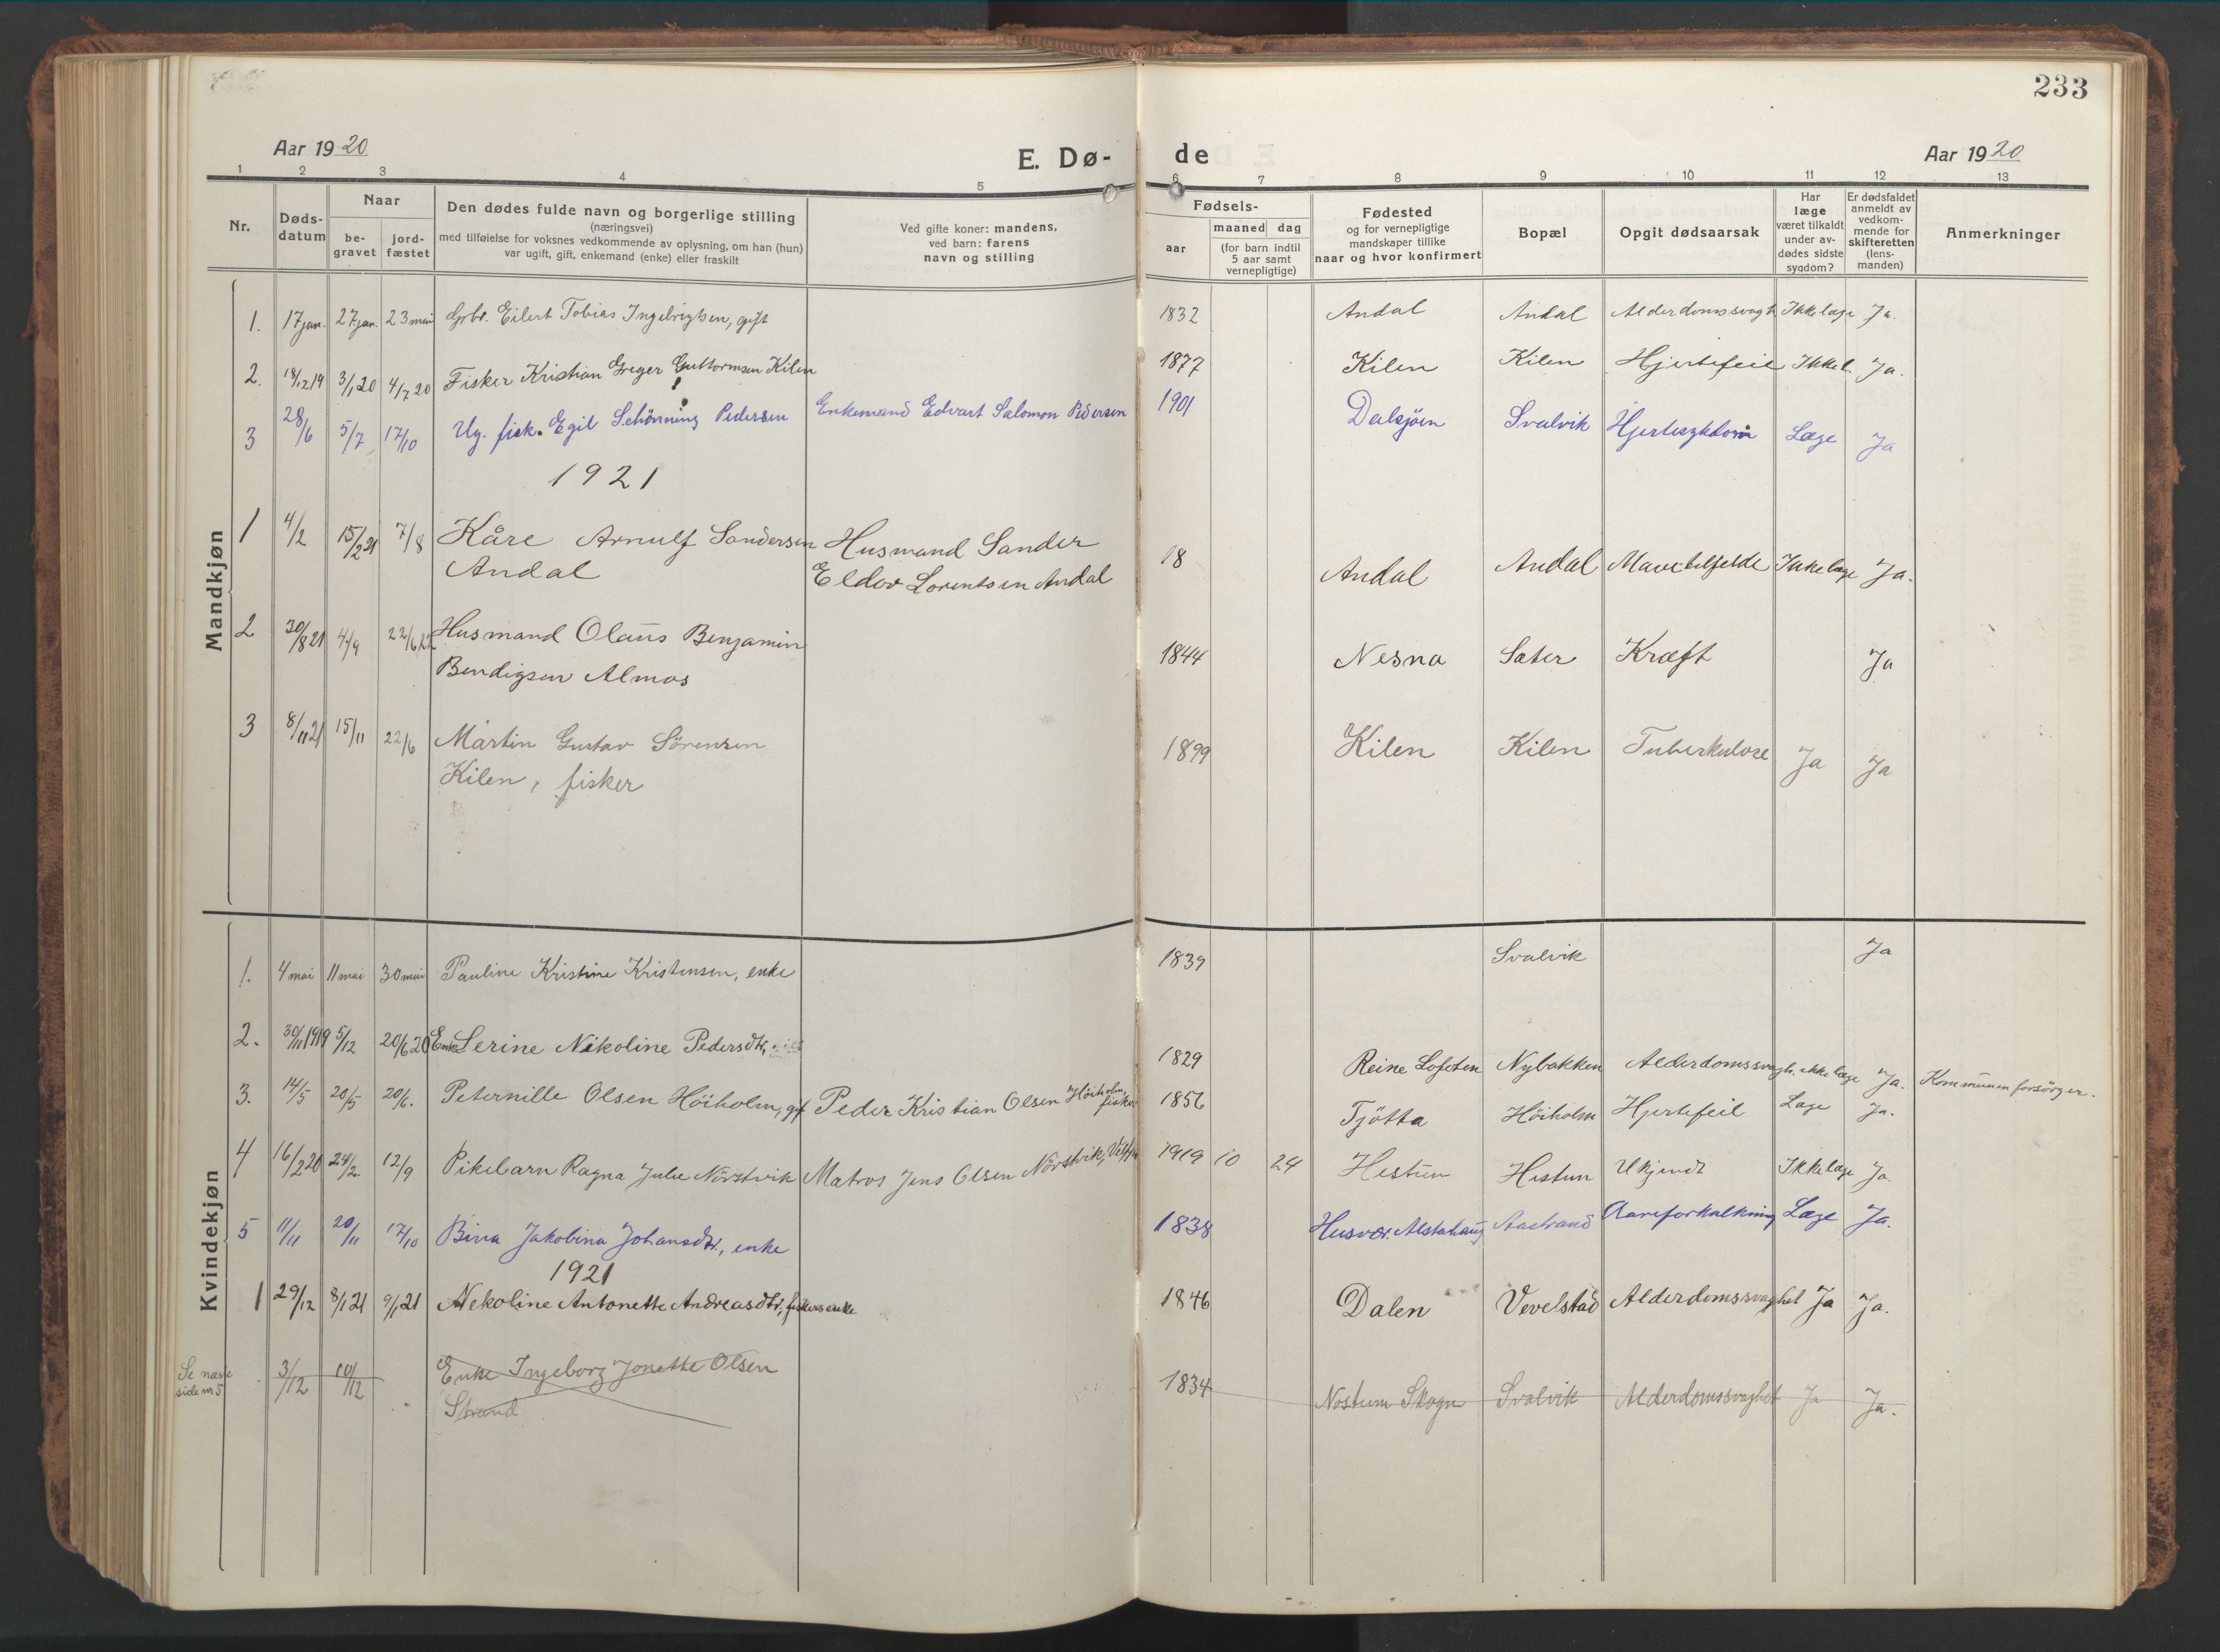 233
Aar 1920
E. Dø-
de
Aar 1920
1 2 3 4 5 6 7 8 9 10 11 12 13
Nr.
Døds-
datum
Naar
be-
gravet
jord-
fæstet
Den dødes fulde navn og borgerlige stilling
(næringsvei)
med tilføielse for voksnes vedkommende av oplysning, om han (hun)
var ugift, gift, enkemand (enke) eller fraskilt
Ved gifte koner: mandens,
ved barn: farens
navn og stilling
Fødsels-
aar
maaned dag
(for barn indtil
5 aar samt
vernepligtige)
Fødested
og for vernepligtige
mandskaper tillike
naar og hvor konfirmert
Bopæl
Opgit dødsaarsak
Har
læge
været tilkaldt
under av-
dødes sidste
sygdom?
Er dødsfaldet
anmeldt av
vedkom-
mende for
skifteretten
(lens-
manden)
Anmerkninger
Mandkjøn
1. 17 jan. 27 jan. 23 mai Grbr. Eilert Tobias Ingebrigtsen, gift 1832 Andal Andal Alderdomssvagh Ikke læge Ja.
2. 18/12 19 3/1 20 4/7 20 Fisker Kristian Greger Guttormsen Kilen 1877 Kilen Kilen Hjertefeil Ikke l. Ja.
3 28/6 5/7 17/10 Ug. fisk. Egil Schönning Pedersen Enkemand Edvart Salomon Pedersen 1901 Dalsjöen Svalvik Hjertesykdom Læge Ja
1921
1 4/2 15/2 21 7/8 Kåre Arnulf Sandersen Husmand Sander 18 Andal Andal Mavetilfelde Ikke læge Ja.
Andal Eldov Lorentsen Andal
2 30/8 21 4/9 22/6 22 Husmand Olaus Benjamin 1844 Nesna Sæter Kræft Ja
Bendigsen Almos
3 8/11 21 15/11 22/6 Martin Gustav Sörensen 1899 Kilen Kilen Tuberkulose Ja Ja
Kilen, fisker
Kvindekjøn
1. 4 mai 11 mai 30 mai Pauline Kristine Kristensen, enke 1839 Svalvik Ja
2. 30/11 1919 5/12 20/6 20 Enke Serine Nikoline Pedersdtr. 1829 Reine Lofoten Nybakken Alderdomssvagh. ikke læge Ja. Kommunen forsörger.
3. 14/5 20/5 20/6. Peternille Olsen Höiholm, gift Peder Kristian Olsen Höiholm, fisker 1856 Tjötta Höiholm Hjertefeil Læge Ja.
4 16/2 20 24/2. 12/9 Pikebarn Ragna Julie Nörstvik Matros Jens Olsen Nörstvik, 1919 10 24 Hestun Hestun Ukjendt Ikke læge Ja.
5 11/11 20/11 17/10 Bina Jakobina Johansdtr., enke 1838 Husvær. Alstahaug Aastrand Aareforkalkning Læge Ja.
1921
1 29/12 8/1 21 9/1 21 Nekoline Antonette Andreasdtr., fiskers enke 1846 Dalen Vevelstad Alderdomssvaghet Ja Ja.
Se næste
side nr 5
3/12 10/12 Enke Ingeborg Jonette Olsen 1834 Nostum Skogn Svalvik Alderdomssvaghet Ja Ja.
Strand